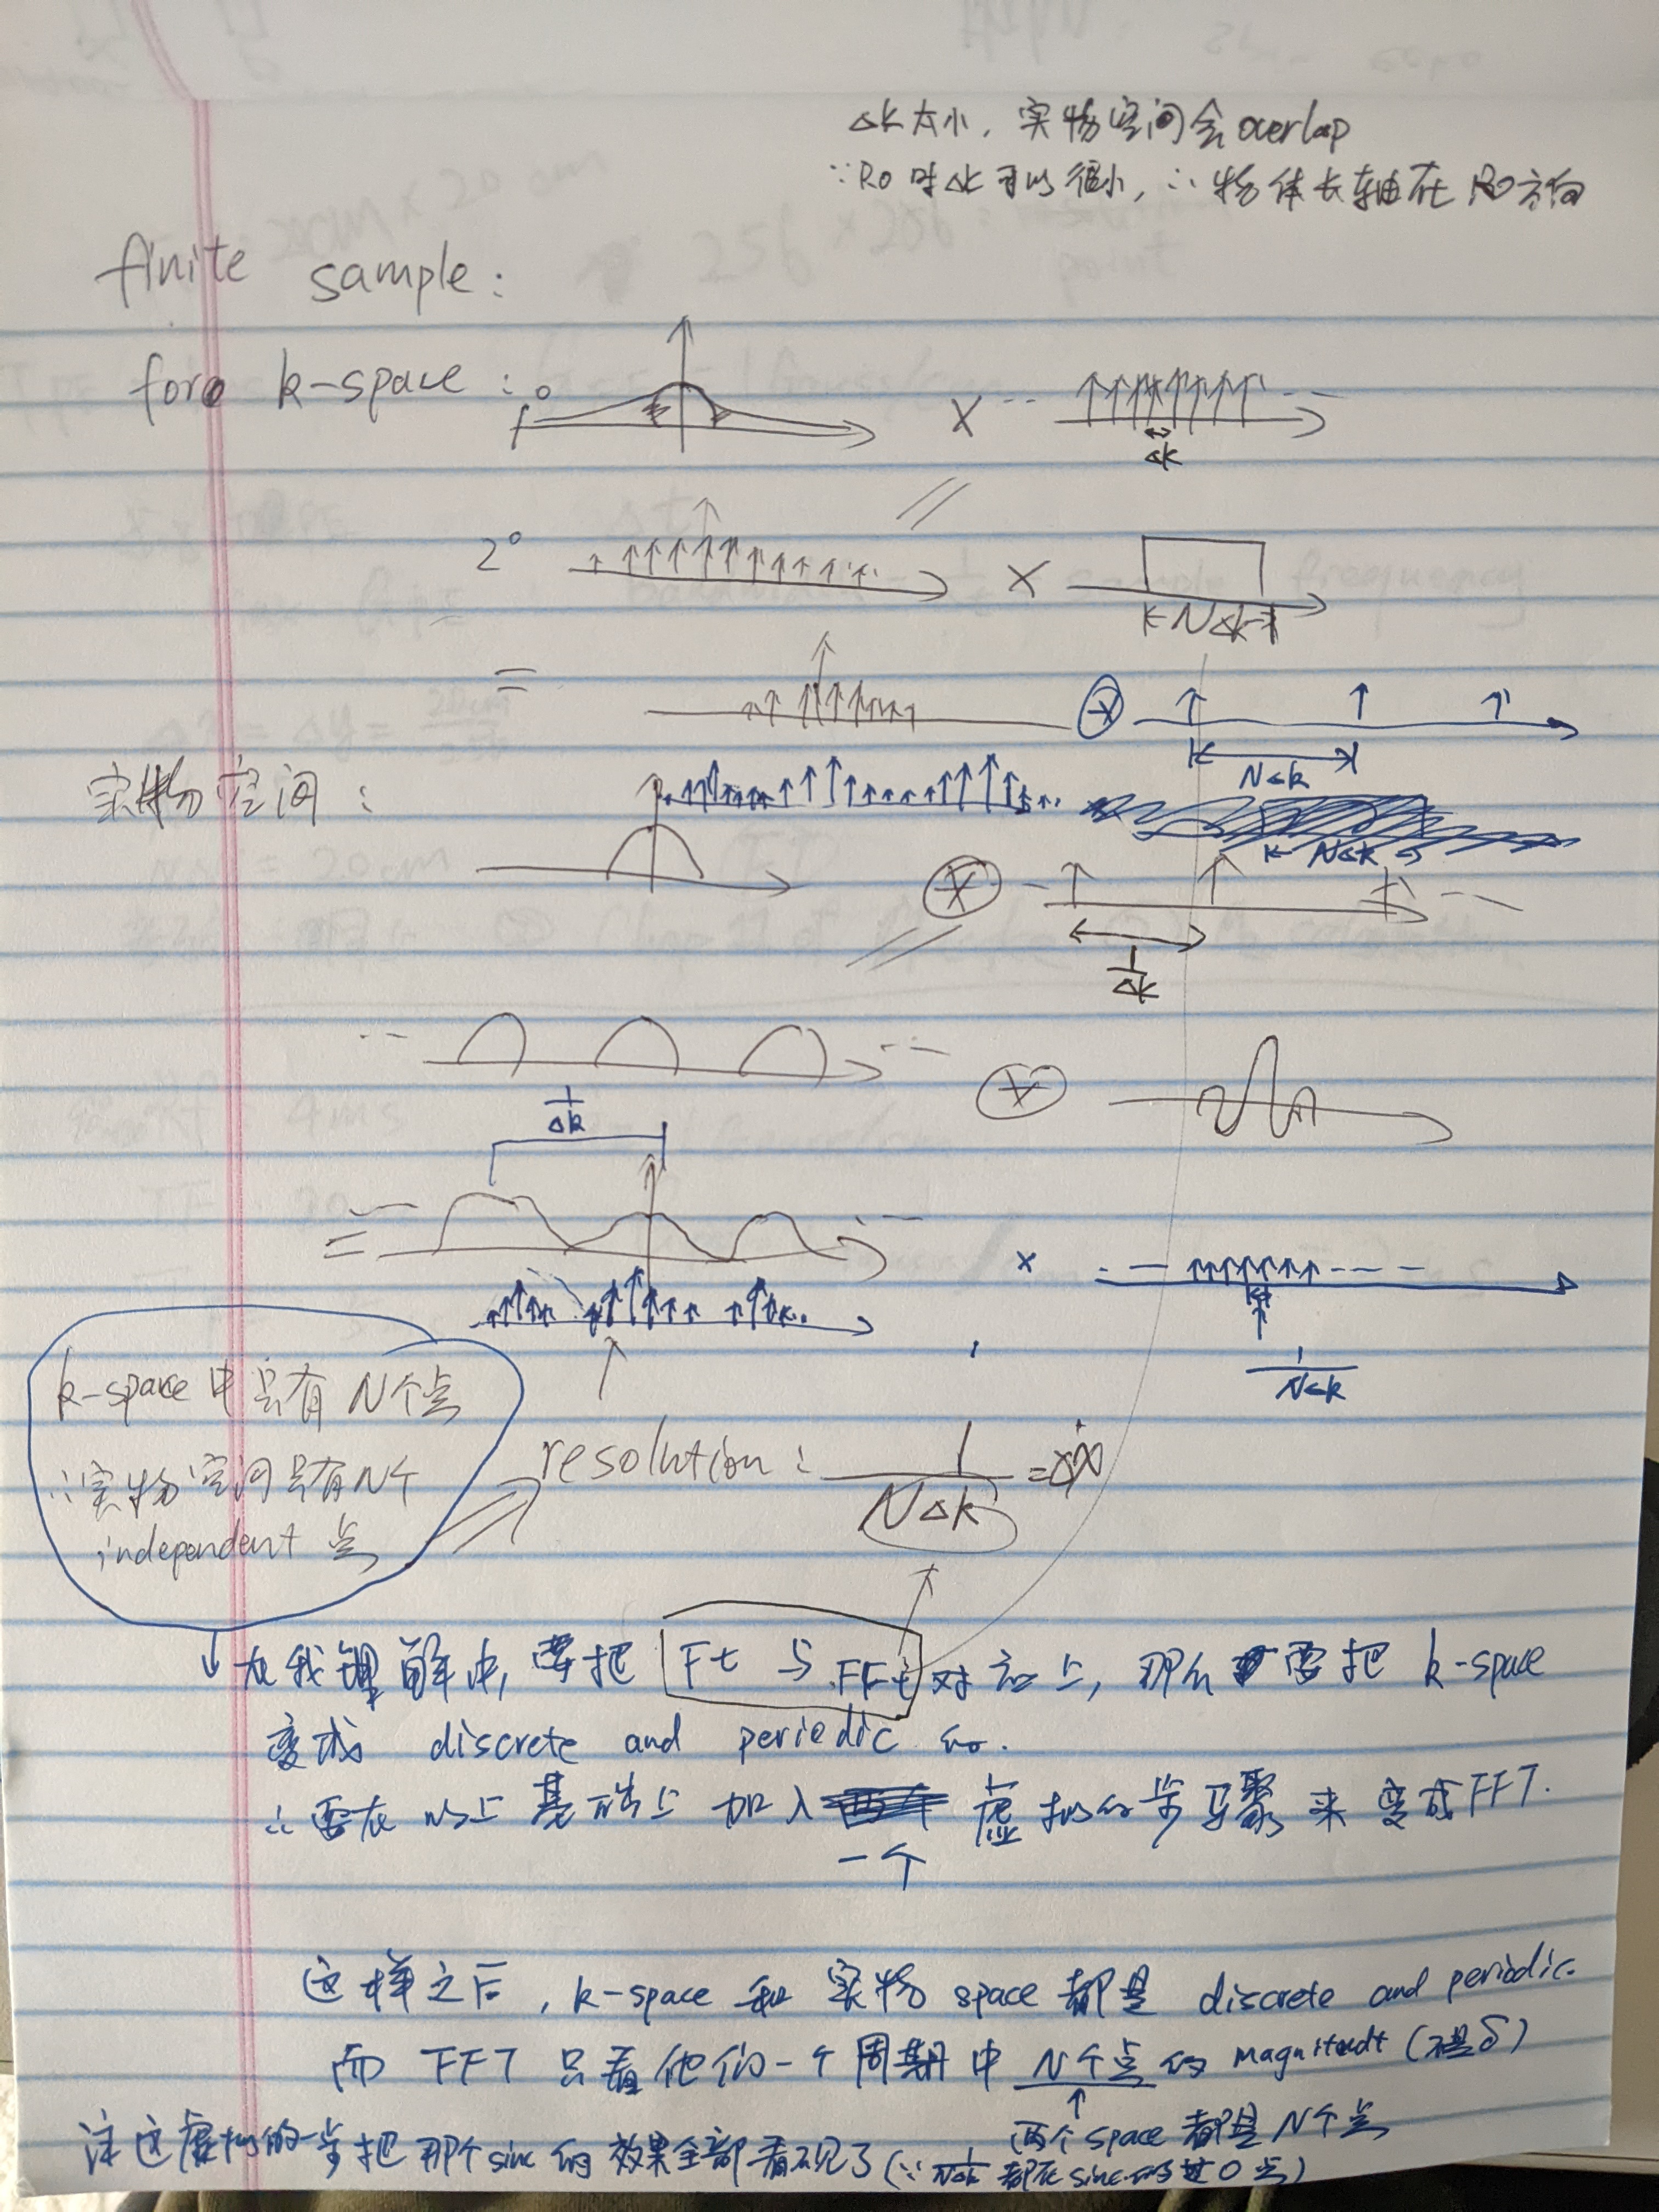 Δk太小，实物空间会overlap
∵RO时Δk可以很小，∴物体长轴在RO方向
finite sample:
for k-space: 1°
X
Δk
2° X
NΔk
=
NΔk
实物空间:
NΔk
1/Δk
1/Δk
=
x
1/NΔk
k-space中只有N个点
∴实物空间只有N个
independent 点
resolution: 1/NΔk = Δx
在我理解中,要把 Ft 与 FFt 对应上, 那么需要把 k-space
变成 discrete and periodic 的.
∴要在以上基础上 加入 一个 虚拟的步骤来变成FFT.
这样之后, k-space 和 实物 space 都是 discrete and periodic.
而 FFT 只看他们一个周期中 N个点 的 magnitudt (不是δ)
两个 space 都是 N个点
注这虚拟的一步把那个sinc的效果全部看不见了(∵ 1/NΔk 都在sinc的过0点)